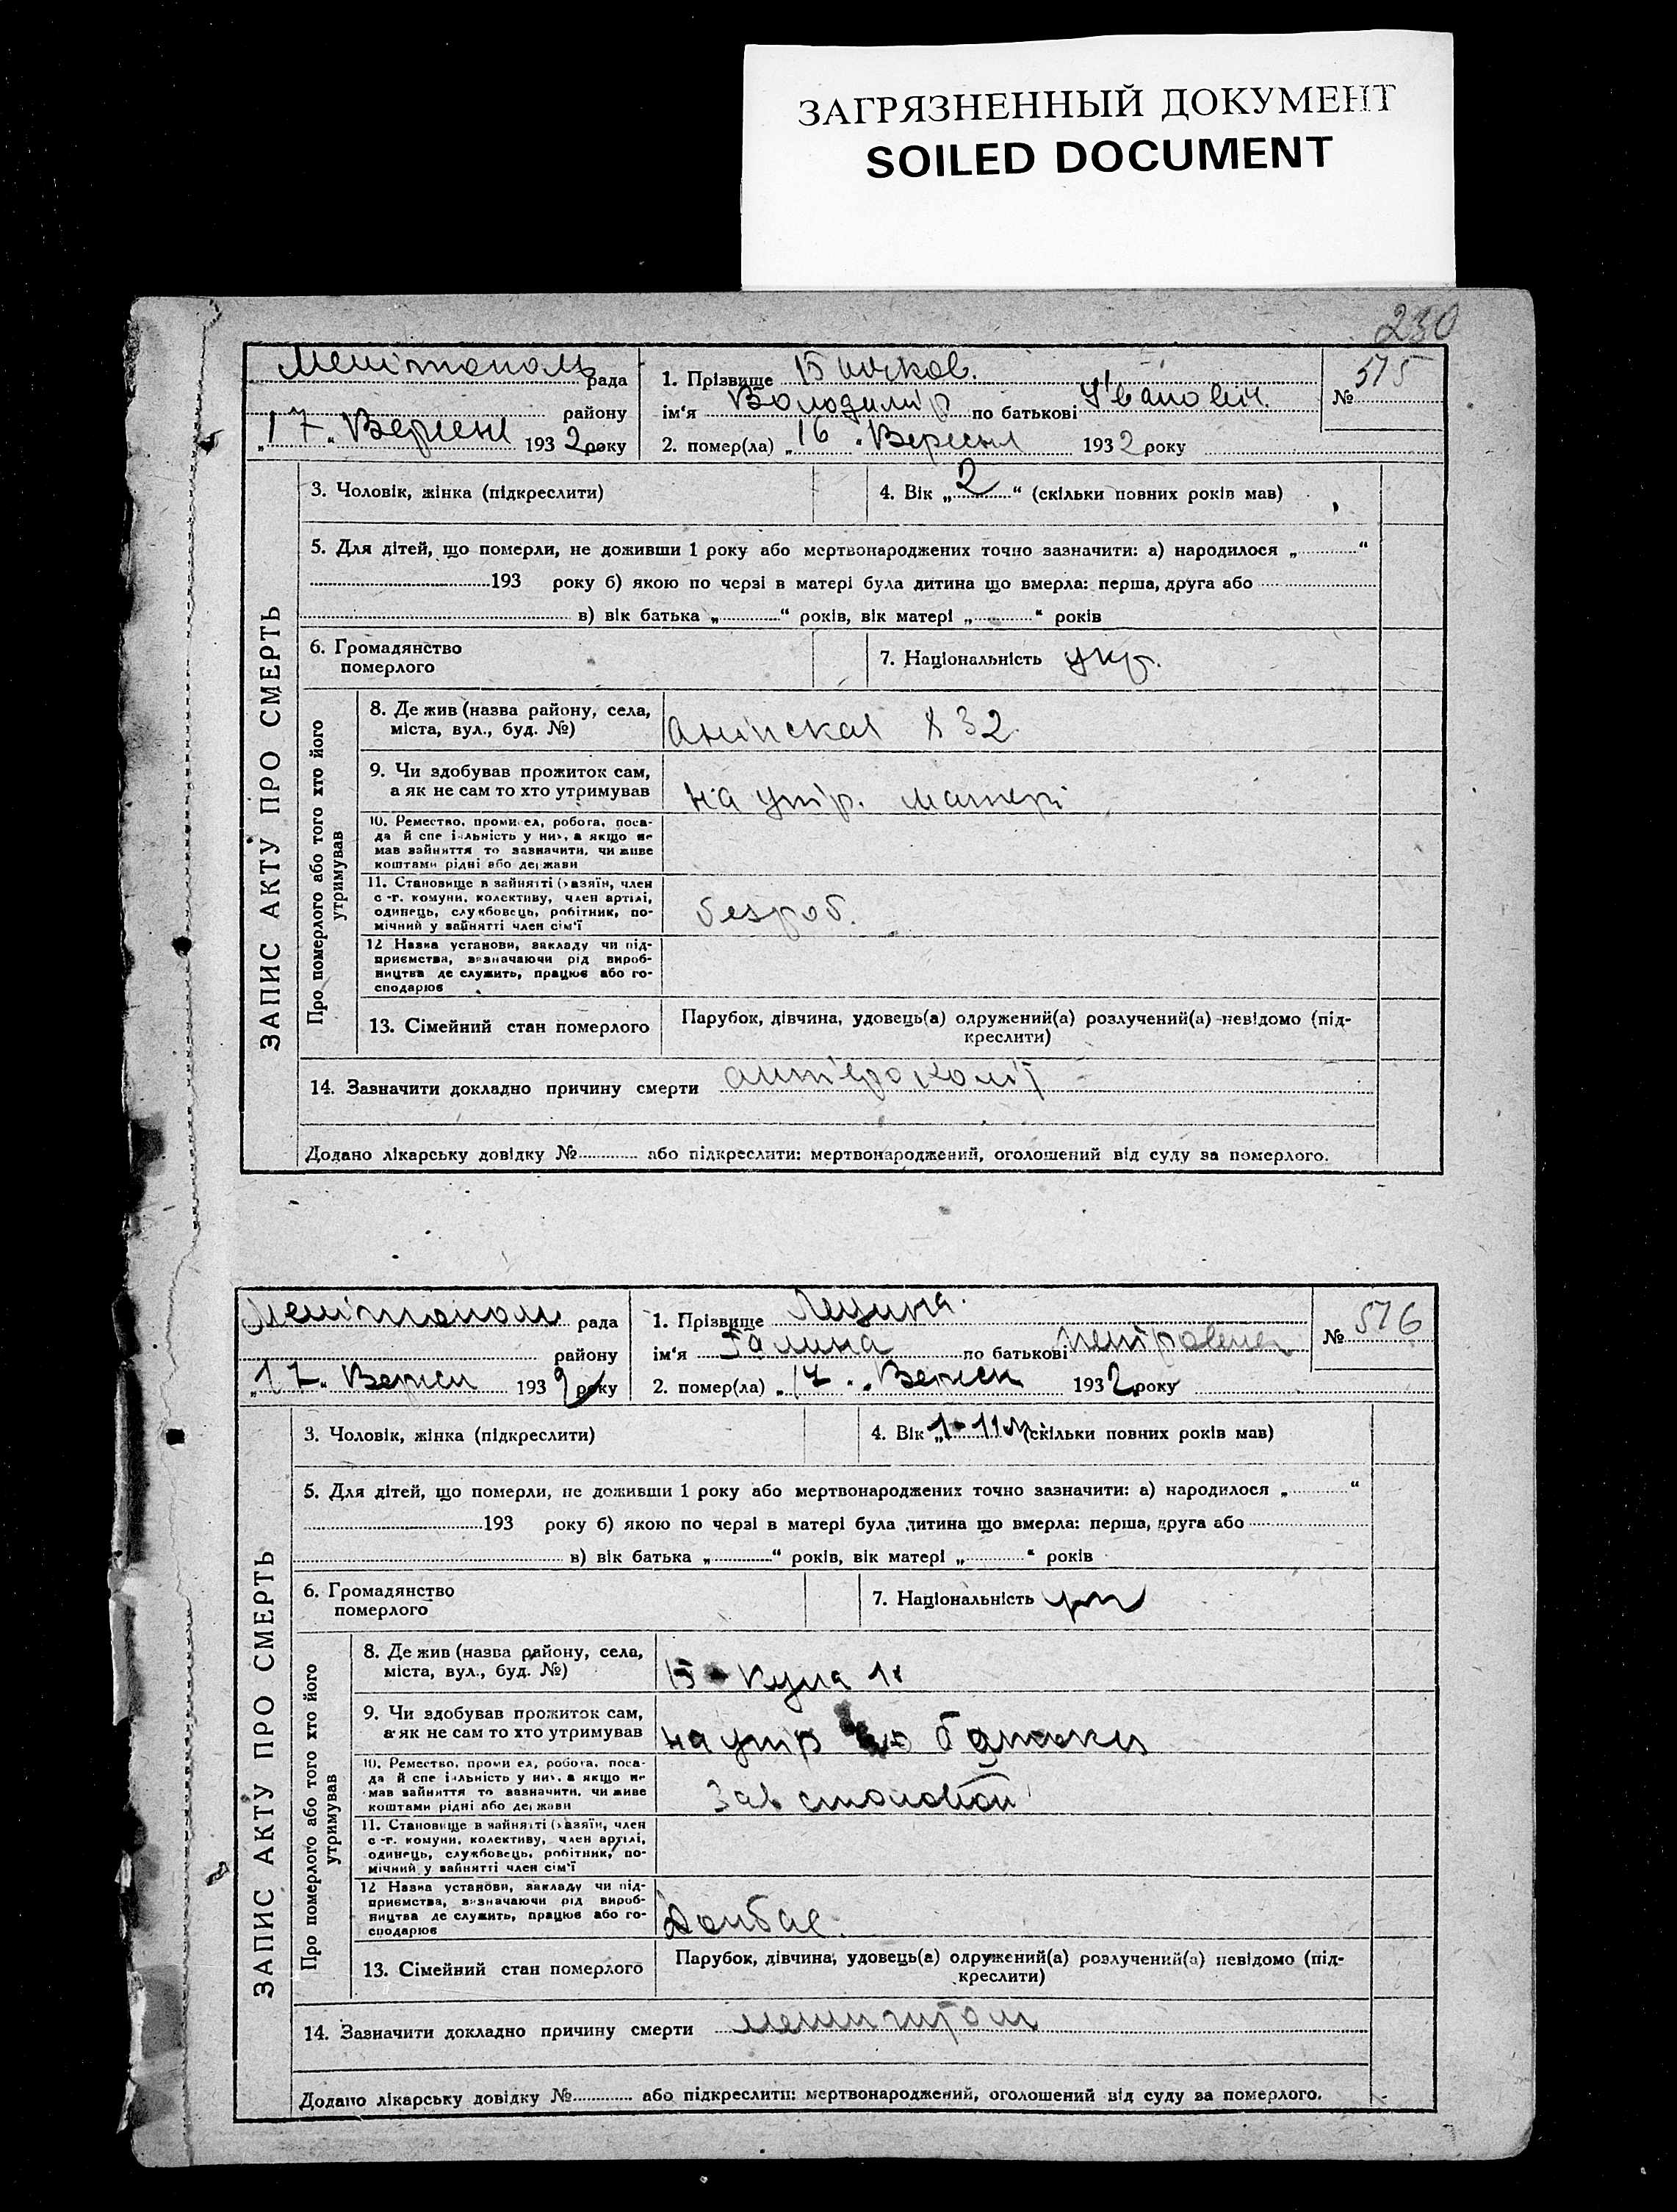 ЗАГРЯЗНЕННЫЙ ДОКУМЕНТ
SOILED DOCUMENT
230
Мелітополь рада
району
„17„ Вересня 1932 року
1. Прізвище Бичков.
ім'я Володимір по батькові Іванович.
2. помер(ла) „16 „ Вересня 1932 року
№ 515
ЗАПИС АКТУ ПРО СМЕРТЬ
3. Чоловік, жінка (підкреслити)
4. Вік „2“ (скільки повних років мав)
5. Для дітей, що померли, не доживши 1 року або мертвонароджених точно зазначити: а) народилося „ “
193 року б) якою по черзі в матері була дитина що вмерла: перша, друга або
в) вік батька „ “ років, вік матері „ “ років
6. Громадянство
померлого
7. Національність укр.
Про померлого або того хто його
утримував
8. Де жив (назва району, села,
міста, вул., буд. №)
32
9. Чи здобував прожиток сам,
а як не сам то хто утримував
на утр. матері
10. Ремество, промисел, робота, поса-
да й спеціальність у них, а якщо не
мав зайняття то зазначити, чи живе
коштами рідні або держави
11. Становище в зайнятті (хазяїн, член
с.-г. комуни, колективу, член артілі,
одинець, службовець, робітник, по-
мічний у зайнятті член сім'ї
безроб.
12 Назва установи, закладу чи під-
приємства, зазначаючи рід вироб-
ництва де служить, працює або го-
сподарює
13. Сімейний стан померлого
Парубок, дівчина, удовець(а) одружений(а) розлучений(а) невідомо (під-
креслити)
14. Зазначити докладно причину смерти
Додано лікарську довідку № або підкреслити: мертвонароджений, оголошений від суду за померлого.
Мелітополь рада
району
„17„ Вересн 1932 року
1. Прізвище
ім'я Галина по батькові Петровна
2. помер(ла) „17 „ Вересн 1932 року
№ 516
ЗАПИС АКТУ ПРО СМЕРТЬ
3. Чоловік, жінка (підкреслити)
4. Вік „1-11м (скільки повних років мав)
5. Для дітей, що померли, не доживши 1 року або мертвонароджених точно зазначити: а) народилося „ “
193 року б) якою по черзі в матері була дитина що вмерла: перша, друга або
в) вік батька „ “ років, вік матері „ “ років
6. Громадянство
померлого
7. Національність
Про померлого або того хто його
утримував
8. Де жив (назва району, села,
міста, вул., буд. №)
9. Чи здобував прожиток сам,
а як не сам то хто утримував
на утр батьки
10. Ремество, промисел, робота, поса-
да й спеціальність у них, а якщо не
мав зайняття то зазначити, чи живе
коштами рідні або держави
Зав столовой
11. Становище в зайнятті (хазяїн, член
с.-г. комуни, колективу, член артілі,
одинець, службовець, робітник, по-
мічний у зайнятті член сім'ї
12 Назва установи, закладу чи під-
приємства, зазначаючи рід вироб-
ництва де служить, працює або го-
сподарює
Донбас.
13. Сімейний стан померлого
Парубок, дівчина, удовець(а) одружений(а) розлучений(а) невідомо (під-
креслити)
14. Зазначити докладно причину смерти
Додано лікарську довідку № або підкреслити: мертвонароджений, оголошений від суду за померлого.